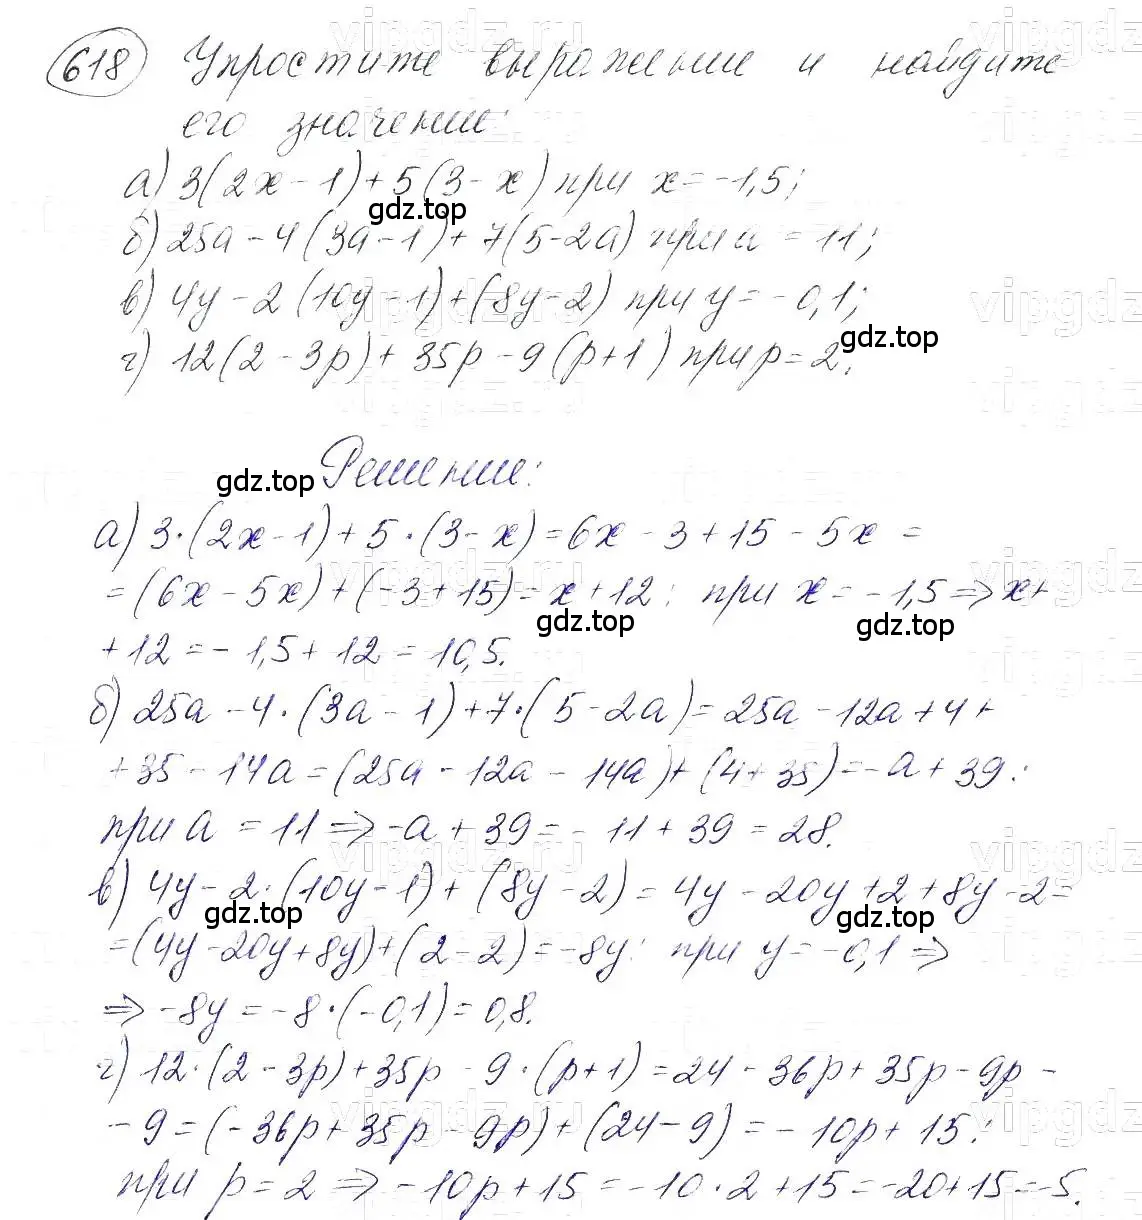 618 Упростите выражение и найдите
его значение:
а) 3(2x-1)+5(3-x) при x=-1,5;
gdz.top
б) 25a-4(3a-1)+7(5-2a) при a=11;
в) 4y-2(10y-1)+(8y-2) при y=-0,1;
г) 12(2-3p)+35p-9(p+1) при p=2.
gdz.top
Решение:
gdz.top
а) 3·(2x-1)+5·(3-x)=6x-3+15-5x=
=(6x-5x)+(-3+15)=x+12; при x=-1,5=>x+
gdz.top
gdz.top
+12=-1,5+12=10,5.
б) 25a-4·(3a-1)+7·(5-2a)=25a-12a+4+
+35-14a=(25a-12a-14a)+(4+35)=-a+39:
при a=11=>-a+39=-11+39=28.
в) 4y-2·(10y-1)+(8y-2)=4y-20y+2+8y-2=
gdz.top
gdz.top
=(4y-20y+8y)+(2-2)=-8y: при y=-0,1=>
=>-8y=-8·(-0,1)=0,8.
г) 12·(2-3p)+35p-9·(p+1)=24-36p+35p-9p-
-9=(-36p+35p-9p)+(24-9)=-10p+15:
при p=2=>-10p+15=-10·2+15=-20+15=-5.
vipgdz.ru